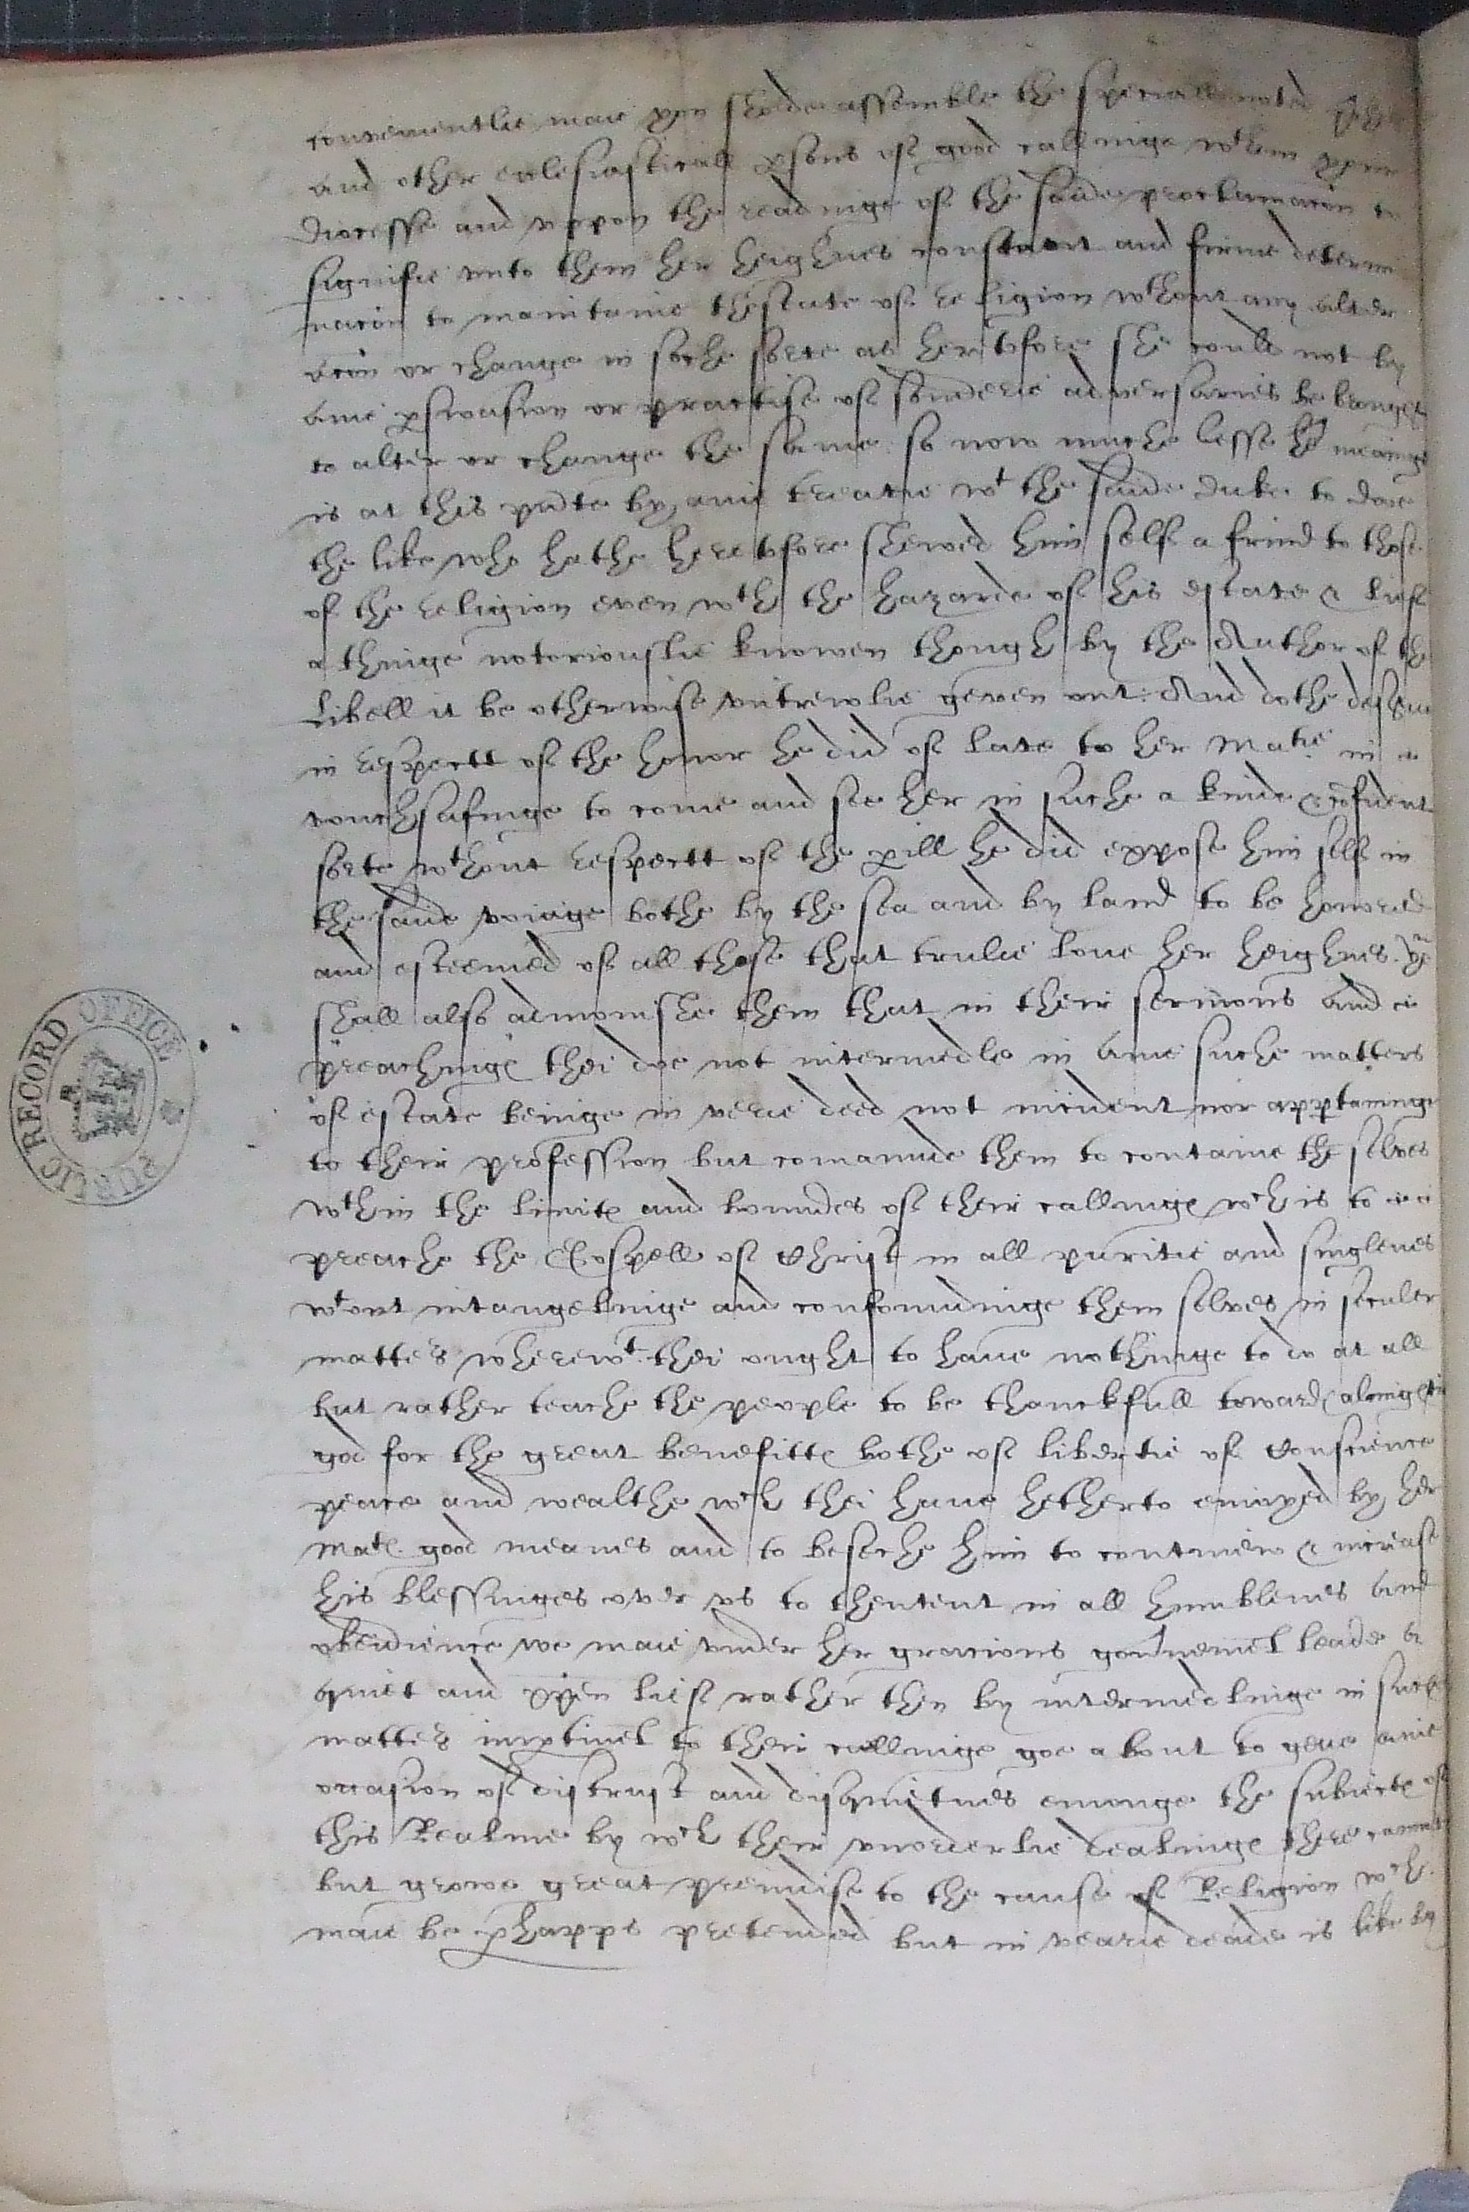 convenientlie maie yow sholde assemble the speciall noted
and other ecclesiasticall psons of good callinge wthin yor
diocesse and vppon the readinge of the saide proclamacon to
signifie vnto them her heighnes constant and firme determi
nacon to maintaine thestate of religion wthout any alter
acon or change in soche sorte as hertofore she could not by
anie pswasion or practise of sonderie adversaries be brought
to alter or change the same so now muche lesse her meaninge
is at this pnte by anie treatie wt the saide duke to doe
the like who hathe heretofore shewed him self a frind to those
of the religion even wth the hazarde of his estate & lief
a thinge notoriouslie knowen though by the Author of the
Libell it be otherwise vntrewlie geven out: And dothe deserve
in respectt of the honor he did of late to her Matie in
vouchsafinge to come and see her in suche a kinde & cofident
sorte wthout respectt of the pill he did expose him self in
the saide voiage bothe by the sea and by land to be honored
and esteemed of all those that trulie love her heighnes. Yow
shall also admonishe them that in their sermons and
preachinge thei doe not intermedle in anie suche matters
of estate beinge in verie deed not incident nor apptaininge
to their profession but comannde them to containe the selves
wthin the limite and boundes of their callinge wch is to
preache the Gospell of Christ in all puritie and singlenes
wtout intangelinge and confoundinge them selves in seculer
matters wherewt thei ought to have nothinge to do at all
but rather teache the people to be thanckfull towards almightie
god for the great benefitte bothe of libertie of Conscience
peace and wealthe wch thei have hetherto enioyed by her
Mate good meanes and to beseche him to contineew & increase
his blessinges over vs to thentent in all humblenes and
obedience we maie vnder her gracious gouvnemt leade a
quiet and xpien lief rather then by intermedlinge in suche
matters imptinet to their callinge goe about to geve anie
occasion of distrust and disquietnes emonge the subiects of
this Realme by wch their vnorderlie dealinge there cannot
but growe great preiudise to the cause of Religion wch
maie be phapps pretended but in vearie deade is like by
PUBLIC RECORD OFFICE